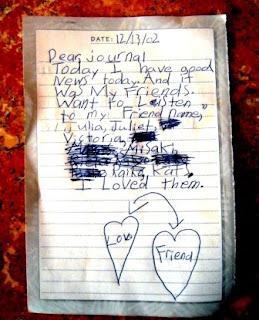 DATE: 12/13/02
Dear journal
Today I have good
News today. And it
was My Friends.
Want to Listen
to my Friend name,
Julia, Juliet,
Victoria,
Misaki,
Kaika, Kat.
I Loved them.
Love
Friend